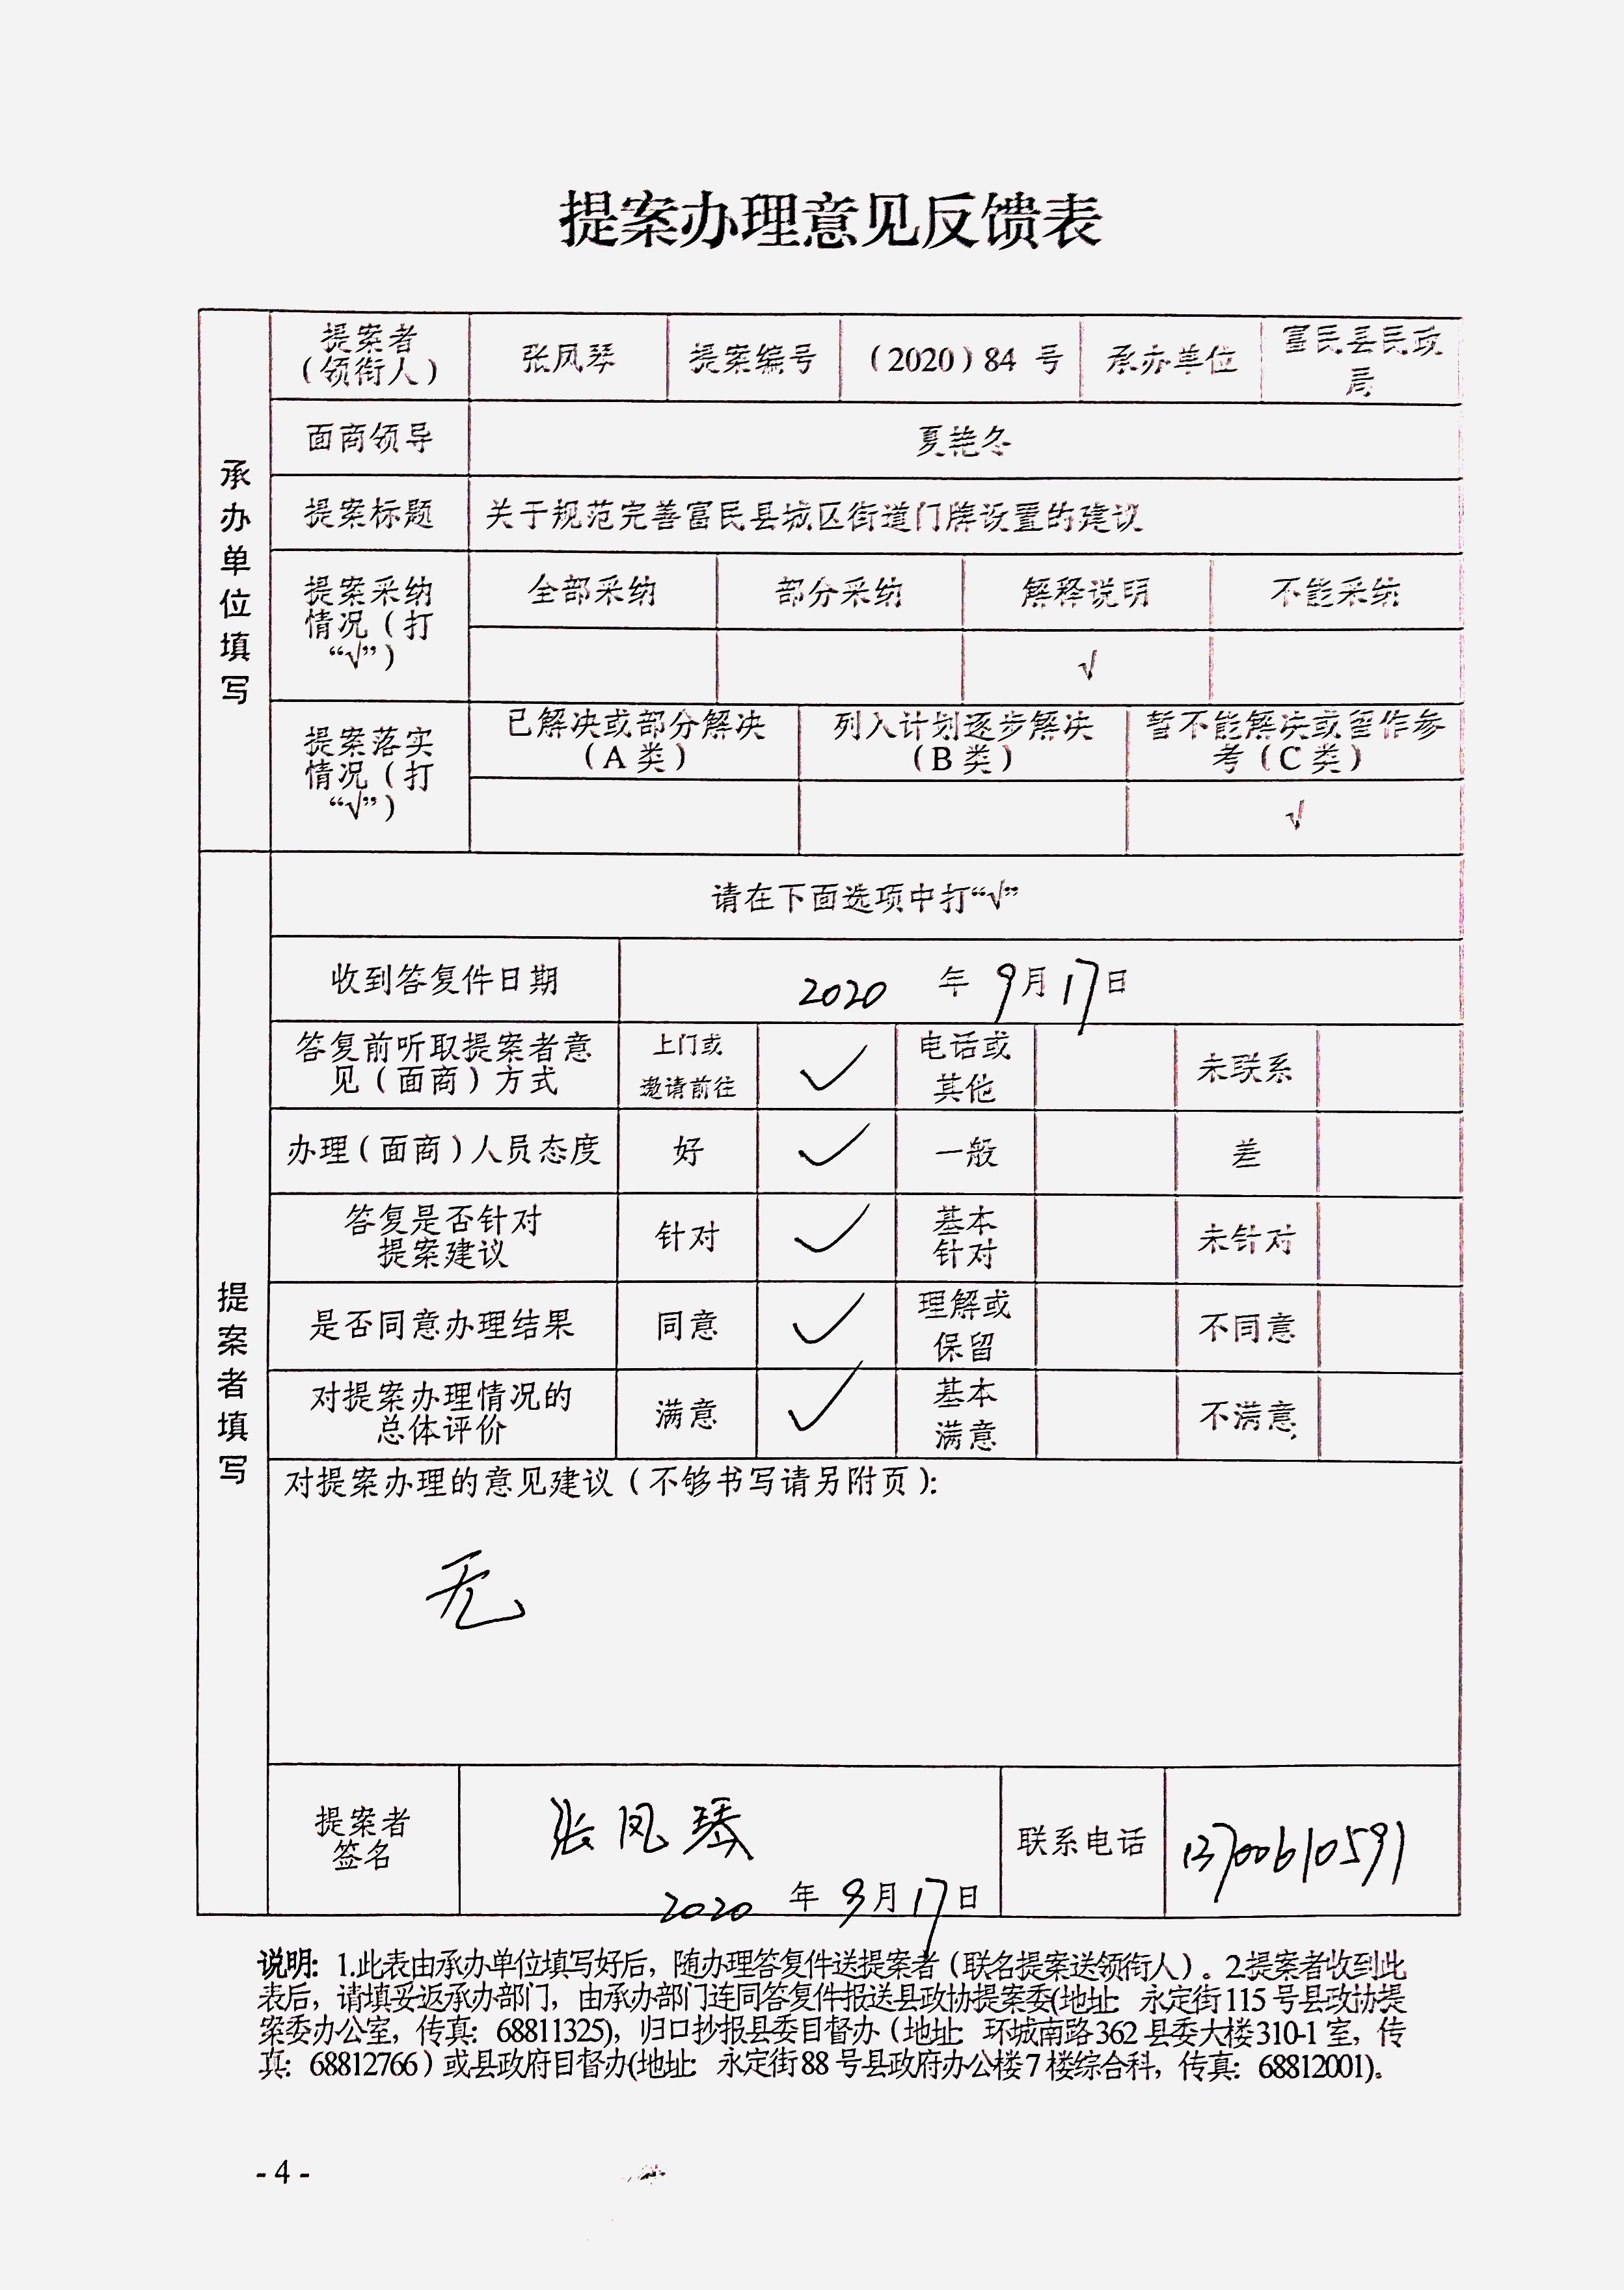 提案办理意见反馈表
承办单位填写
提案者
（领衔人）
张凤琴
提案编号
（2020）84 号
承办单位
富民县民政
局
面商领导
夏艳冬
提案标题
关于规范完善富民县城区街道门牌设置的建议
提案采纳
情况（打
“√”）
全部采纳
部分采纳
解释说明
不能采纳
√
提案落实
情况（打
“√”）
已解决或部分解决
（A 类）
列入计划逐步解决
（B 类）
暂不能解决或留作参
考（C 类）
√
提案者填写
请在下面选项中打“√”
收到答复件日期
2020 年 9月17日
答复前听取提案者意
见（面商）方式
上门或
邀请前往
✓
电话或
其他
未联系
办理（面商）人员态度
好
✓
一般
差
答复是否针对
提案建议
针对
✓
基本
针对
未针对
是否同意办理结果
同意
✓
理解或
保留
不同意
对提案办理情况的
总体评价
满意
✓
基本
满意
不满意
对提案办理的意见建议（不够书写请另附页）：
无
提案者
签名
张凤琴
2020 年 9月17日
联系电话
13700610591
说明：1.此表由承办单位填写好后，随办理答复件送提案者（联名提案送领衔人）。2.提案者收到此
表后，请填妥返承办部门，由承办部门连同答复件报送县政协提案委(地址：永定街 115 号县政协提
案委办公室，传真：68811325)，归口抄报县委目督办（地址：环城南路 362 县委大楼 310-1 室，传
真：68812766）或县政府目督办(地址：永定街 88 号县政府办公楼 7 楼综合科，传真：68812001)。
- 4 -